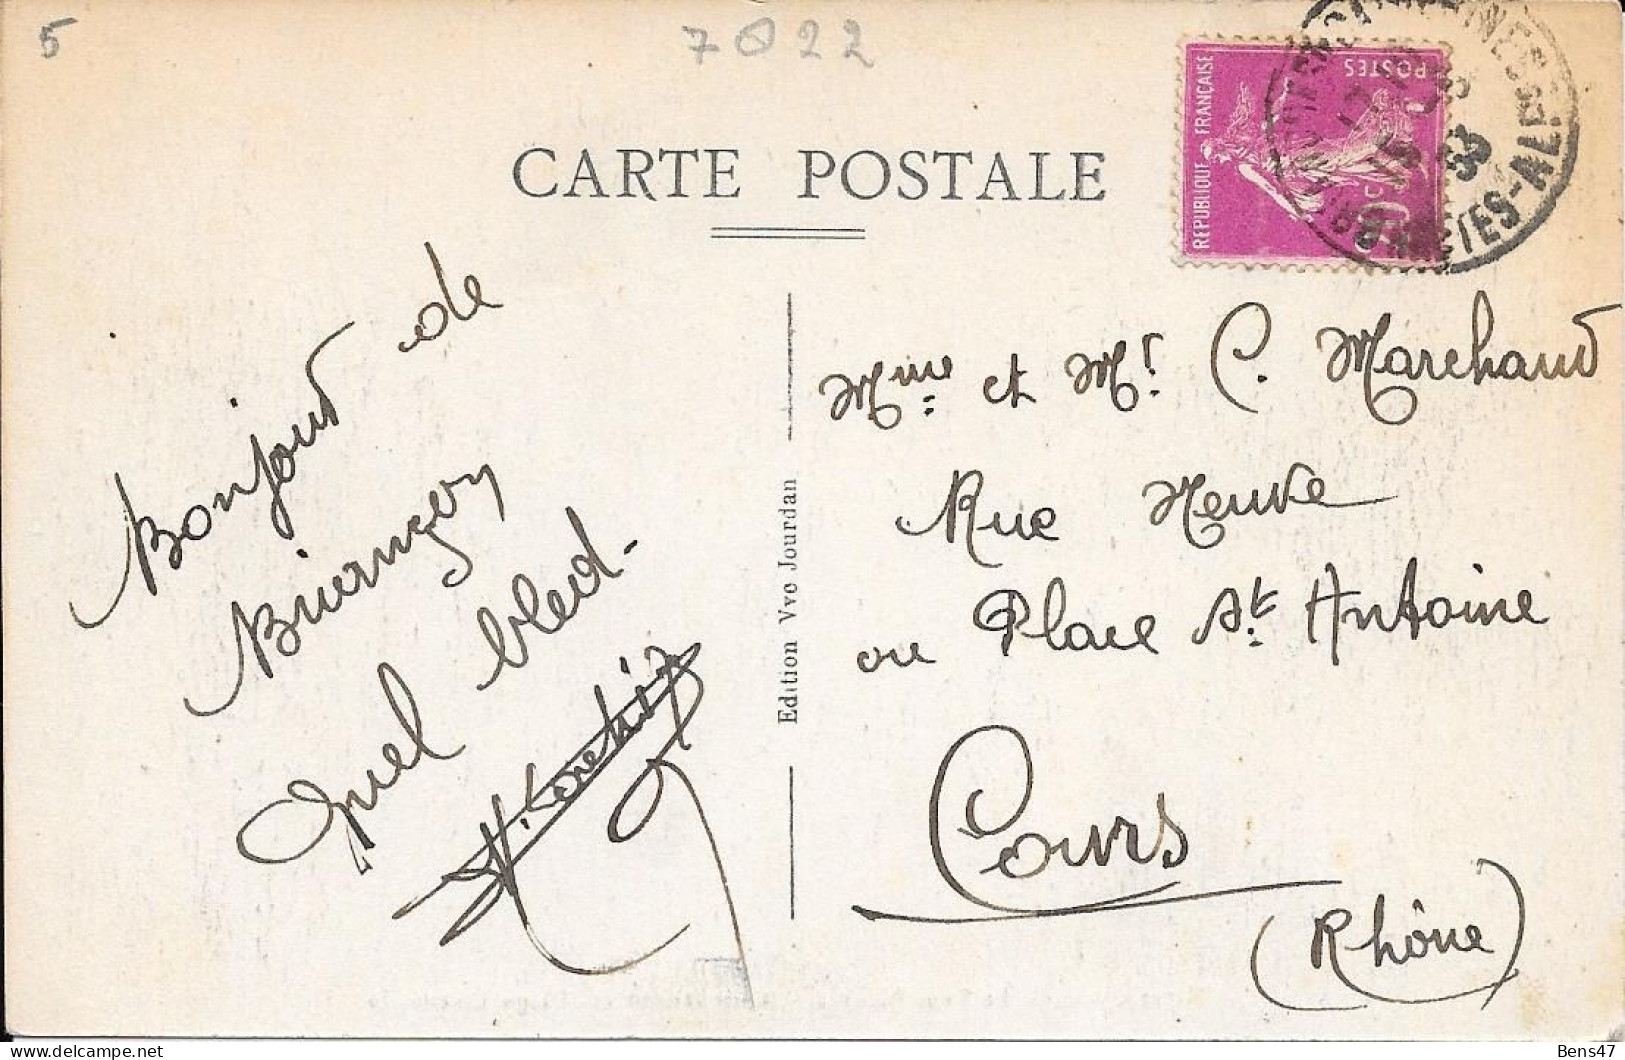 5
7022
CARTE POSTALE
REPUBLIQUE FRANÇAISE
POSTES
HAUTES-ALPES
Bonjour de
Briançon
Quel bled.
Edition Vve Jourdan
Mme et Mr. C. Marchand
Rue Neuve
ou Place St. Antoine
Cours
(Rhône)
Bens47